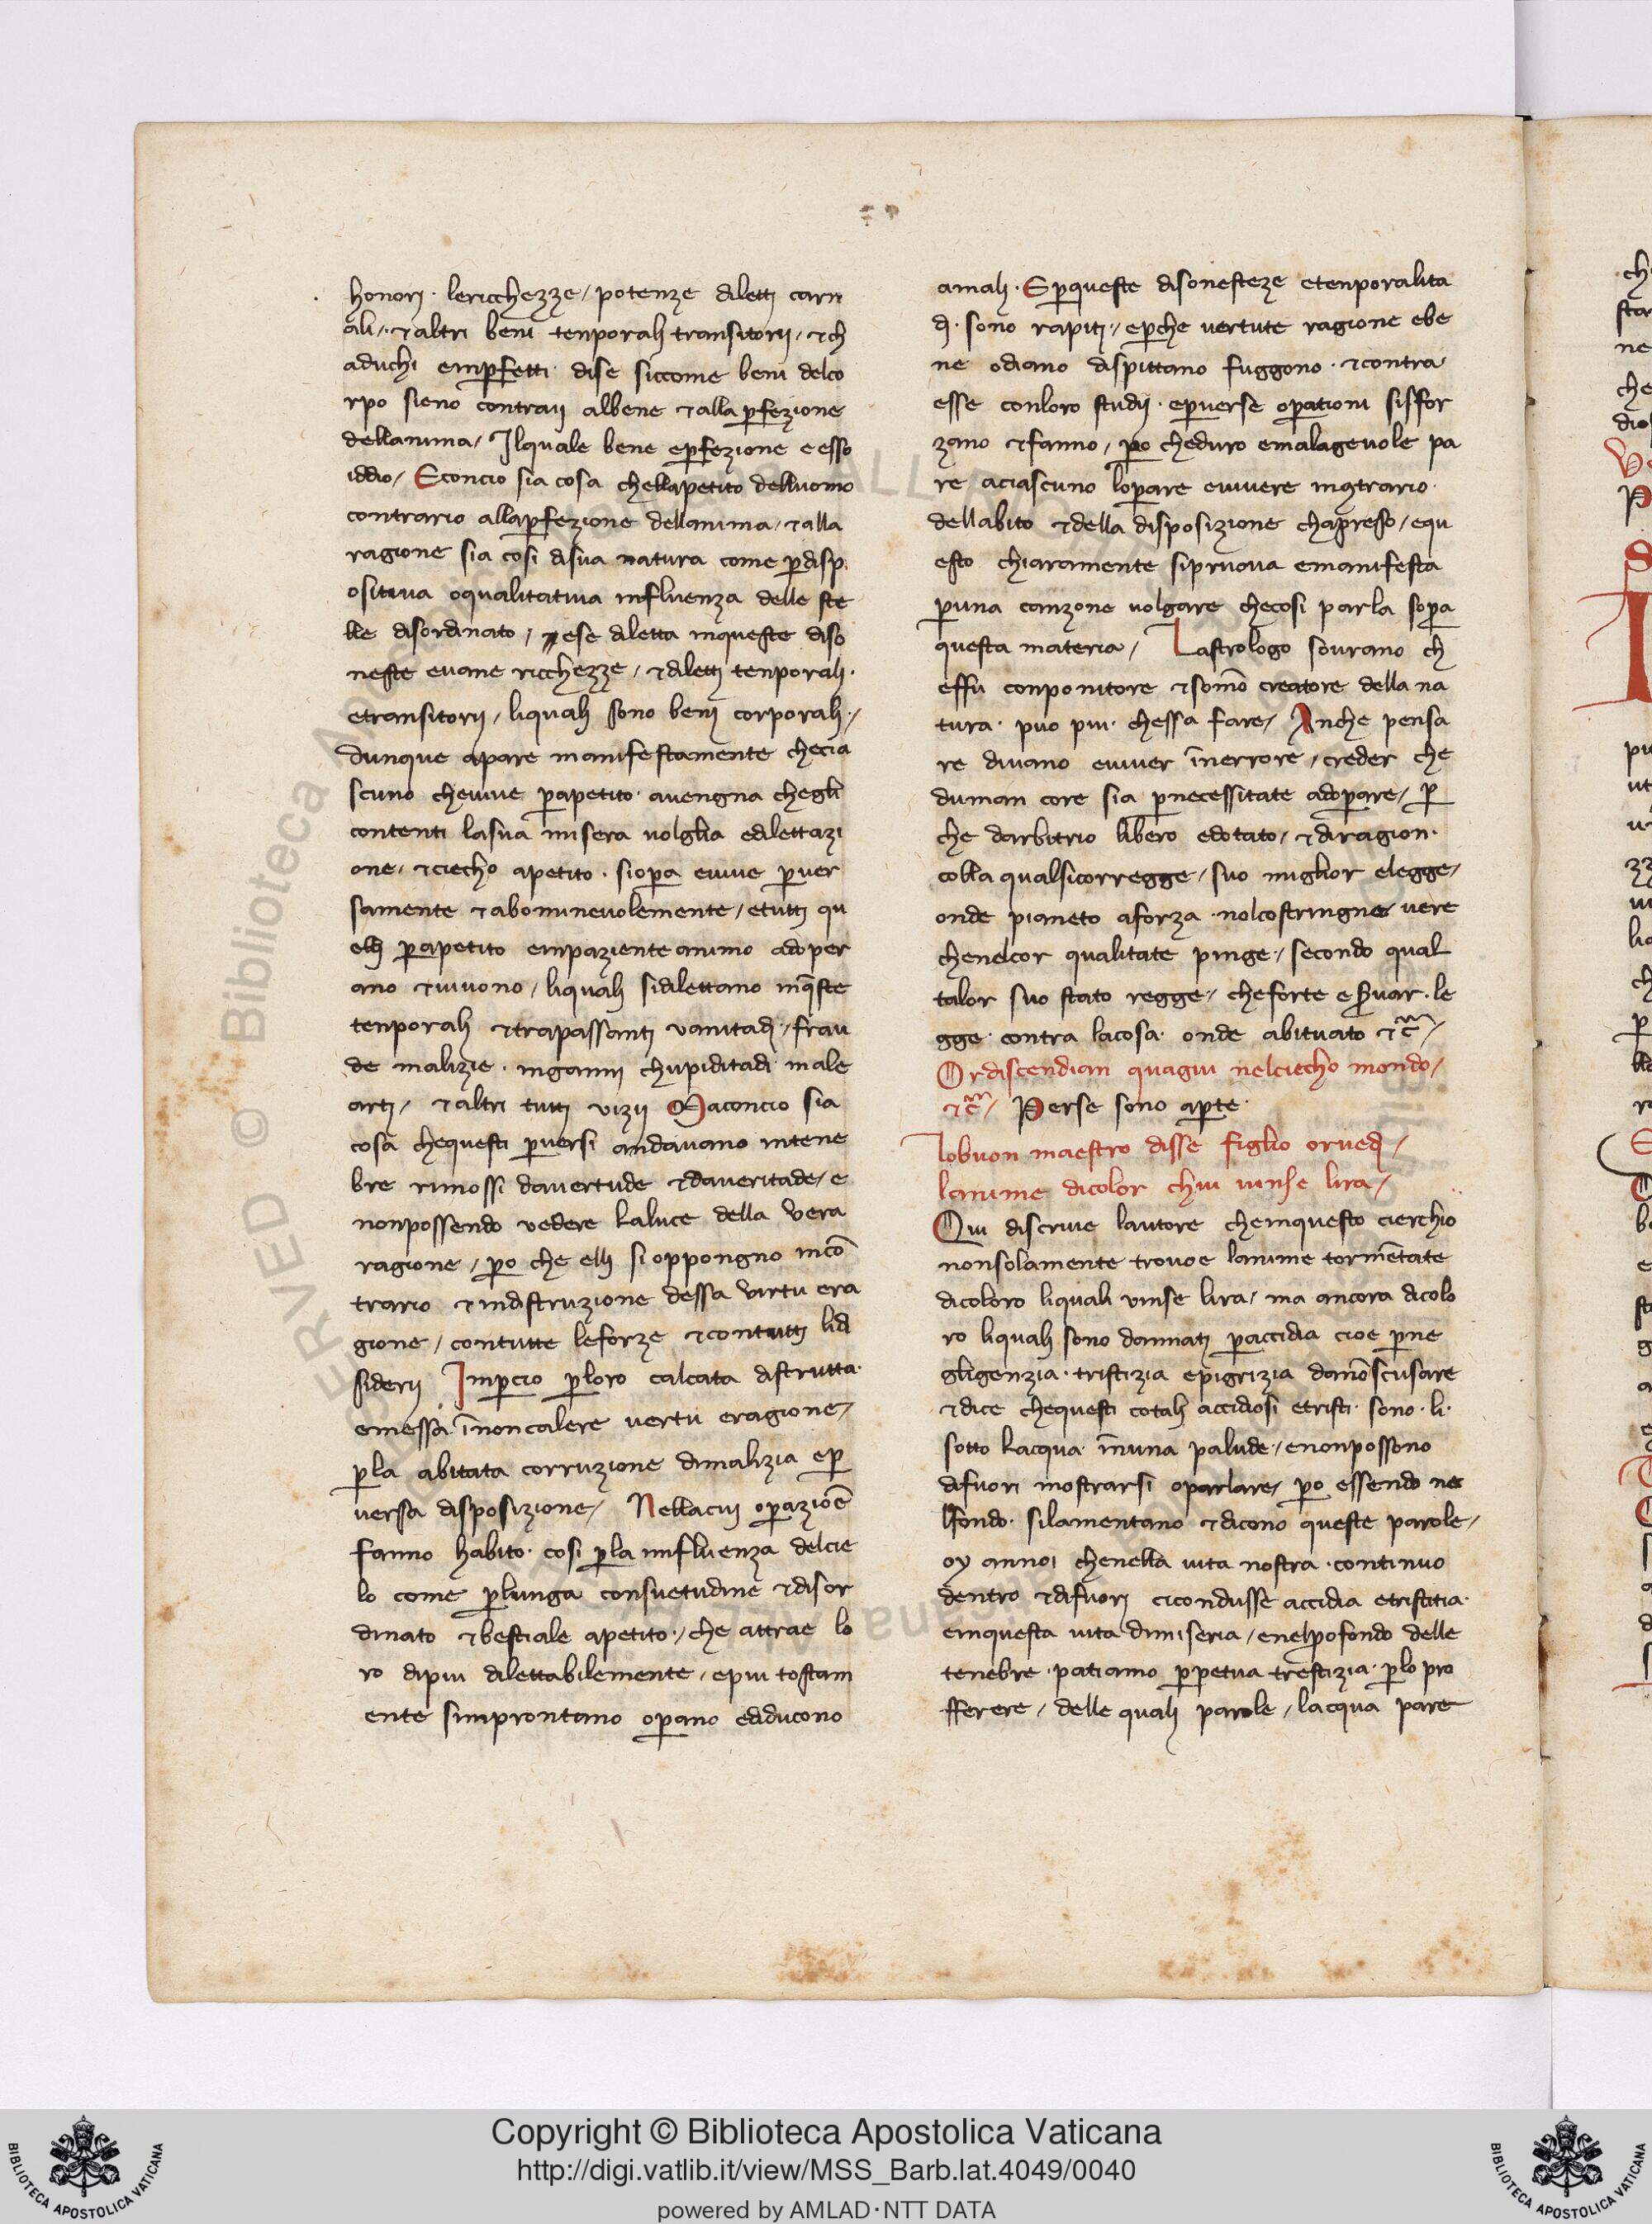 honorj · lericchezze / potenze diletti carn
ali / · ⁊ altri beni tenporalj transitorij / ⁊ ch
aduchi emp̲fetti · dise siccome beni delco
rpo sieno contrarij albene ⁊ alla p̲fezione
dellanima / Ilquale bene ep̲fezione e esso
iddio / Econcio sia cosa chellapetito delluomo
contrario allap̲fezione dellanima / ⁊ alla
ragione sia cosi disua natura come p̲disp
ositiva oqualitativa influenza delle ste
lle disordinato / ese diletta inqueste diso
neste evane ricchezze / ⁊ diletti tenporalj ·
etransitorij / liqualj sono benj corporalj · /
dunque apare manifestamente checia
scuno chevive p̲apetito · avengna chegli
contenti lasua misera volglia edilettazi
one / ⁊ ciecho apetito · siop̲a evive p̲ver
samente ⁊ abominevolemente / etuttj qu
ellj p̲apetito empaziente animo adoper
ano ⁊ vivono / liqualj sidilettano inq̄ste
tenporalj ⁊ trapassantj vanitadj / frau
de malizie · ingannj chupiditadi male
artj / ⁊ altri tuttj vizij Maconcio sia
cosa chequesti p̲versi andavano intene
bre rimossi davertude ⁊ daveritade / e
nonpossendo vedere laluce della vera
ragione / p̲o che ellj si oppongno incō
trario ⁊ indistruzione dessa virtu era
gione / contutte leforze ⁊ contuttj lid
siderij Imp̲cio p̲loro calcata distrutta ·
emessa īnoncalere vertu eragione /
p̲la abitata corruzione dimalizia ep̲
versa disposizione / Nellacuj op̲azioē
fanno habito · cosi p̲la influenza delcie
lo come p̲lunga consuetudine ⁊ disor
dinato ⁊ bestiale apetito · / che attrae lo
ro dipiu dilettabilemente / epiu tostam
ente sinprontano op̲ano edducono
amalj · Ep̲queste disonesteze etenporalita
dj · sono rapitj / ep̲che vertute ragione ebe
ne odiano dispittano fuggono · ⁊ contra
esse conloro studij · ep̲verse op̲ationi sisfor
zano ⁊ fanno / p̲o cheduro emalagevole pa
re aciascuno lop̲are evivere inꝯtrario
dellabito ⁊ della disposizione chapresso / equ
esto chiaramente sipruova emanifesta
p̲una canzone volgare checosi parla sop̲a
questa materia / Lastrologo sovrano ch
effu conponitore ⁊ somō creatore della na
tura · puo piu · chessa fare / Anche pensa
re divano eviver īnerrore / creder che
duman core sia p̲necessitate adop̲are / p̲
che darbitrio libero edotato / ⁊ diragion ·
colla qualsicorregge / suo miglior elegge /
onde pianeto aforza · nolcostringne vere
chenelcor qualitate pinge / secondo qual
talor suo stato regge / cheforte e p̲var · le
gge · contra lacosa · onde abituato ⁊c̄ /
Ordiscendian quagiu nelciecho mondo /
⁊c̄ / Perse sono ap̲te ·
Lobuon maestro disse figlio orvedj /
lanime dicolor chui vinse lira /
Qui discrive lautore chemquesto cierchio
nonsolamente trovoe lanime torm̄etate
dicoloro liquali vinse lira / ma ancora dicolo
ro liqualj sono dannatj p̲accidia cioe p̲ne
gligenzia · tristizia epigrizia danōscusare
⁊ dice chequesti cotalj accidiosi etristi · sono · li ·
sotto lacqua īnuna palude · / enonpossono
difuori mostrarsi oparlare / p̲o essendo ne
lfondo · silamentano ⁊ dicono queste parole /
oy annoi chenella vita nostra · continuo
dentro ⁊ difuorj cicondusse accidia etristitia ·
einquesta vita dimiseria / enelp̲ofondo delle
tenebre · patiamo p̲petua trestizia · p̲lo pro
fferere / delle qualj parole / lacqua pare
Copyright © Biblioteca Apostolica Vaticana
http://digi.vatlib.it/view/MSS_Barb.lat.4049/0040
powered by AMLAD·NTT DATA
BIBLIOTECA APOSTOLICA VATICANA
BIBLIOTECA APOSTOLICA VATICANA